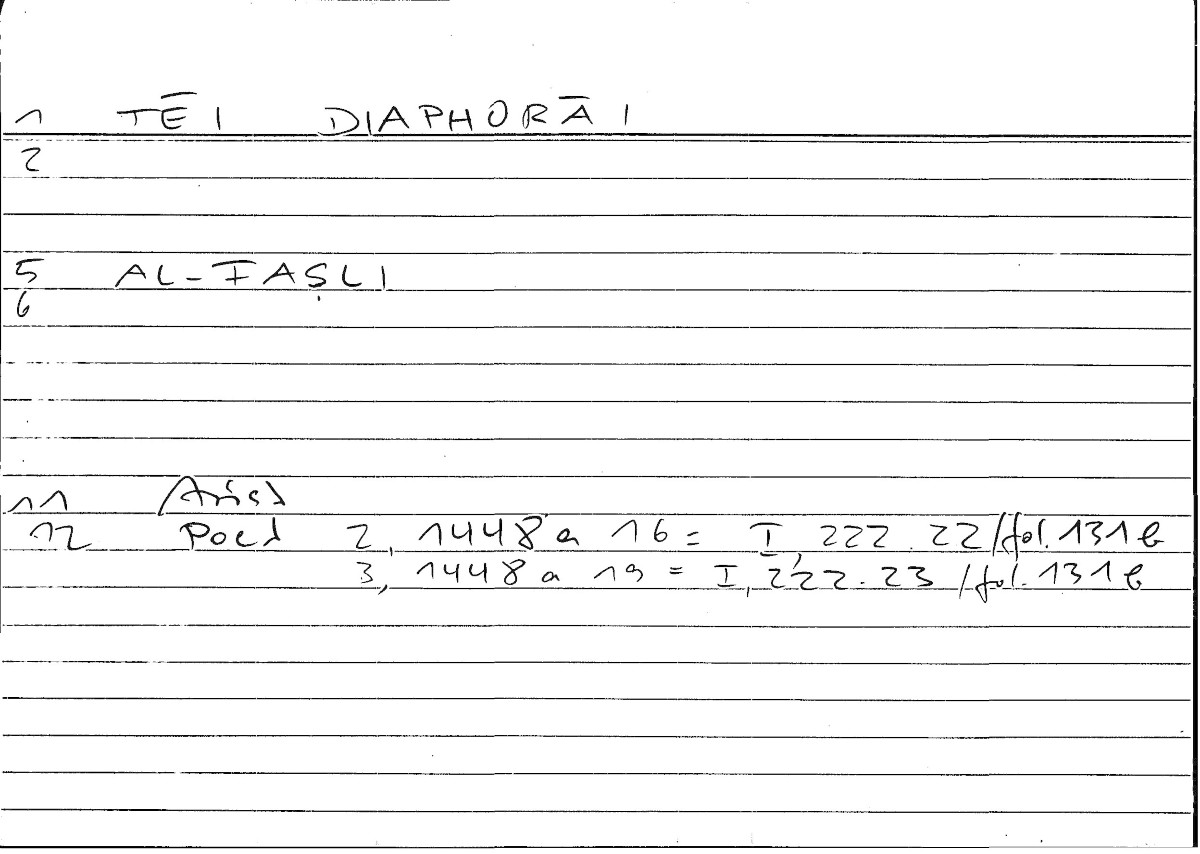 1 TĒI DIAPHORĀI
2
5 AL-FAṢLI
6
11 Arist
12 Poet 2, 1448 a 16 = I, 222.22/fol. 131 b
3, 1448 a 19 = I, 222.23 /fol. 131 b